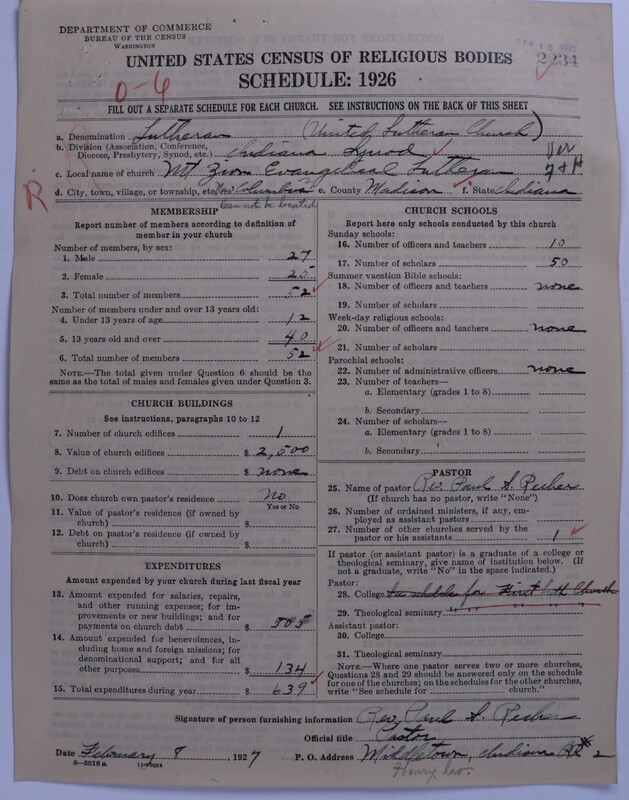 DEPARTMENT OF COMMERCE
BUREAU OF THE CENSUS
WASHINGTON
2234
UNITED STATES CENSUS OF RELIGIOUS BODIES
SCHEDULE: 1926
0-6
FILL OUT A SEPARATE SCHEDULE FOR EACH CHURCH. SEE INSTRUCTIONS ON THE BACK OF THIS SHEET
a. Denomination Lutheran (United Lutheran Church)
b. Division (Association, Conference,
Diocese, Presbytery, Synod, etc.) Indiana Synod
c. Local name of church Mt Zion Evangelical Lutheran
d. City, town, village, or township, etc. New Columbus e. County Madison f. State Indiana
R
MEMBERSHIP
Report number of members according to definition of
member in your church
Number of members, by sex:
1. Male 27
2. Female 25
3. Total number of members 52
Number of members under and over 13 years old:
4. Under 13 years of age 12
5. 13 years old and over 40
6. Total number of members 52
NOTE.—The total given under Question 6 should be
same as the total of males and females given under Question 3.
CHURCH BUILDINGS
See instructions, paragraphs 10 to 12
7. Number of church edifices 1
8. Value of church edifices $ 2,500
9. Debt on church edifices $ none
10. Does church own pastor's residence No
Yes or No
11. Value of pastor's residence (if owned by
church) $
12. Debt on pastor's residence (if owned by
church) $
EXPENDITURES
Amount expended by your church during last fiscal year
13. Amount expended for salaries, repairs,
and other running expenses; for im-
provements or new buildings; and for
payments on church debt $ 505
14. Amount expended for benevolences, in-
cluding home and foreign missions; for
denominational support; and for all
other purposes $ 134
15. Total expenditures during year $ 639
CHURCH SCHOOLS
Report here only schools conducted by this church
Sunday schools:
16. Number of officers and teachers 10
17. Number of scholars 50
Summer vacation Bible schools:
18. Number of officers and teachers none
19. Number of scholars
Week-day religious schools:
20. Number of officers and teachers none
21. Number of scholars
Parochial schools:
22. Number of administrative officers none
23. Number of teachers—
a. Elementary (grades 1 to 8)
b. Secondary
24. Number of scholars—
a. Elementary (grades 1 to 8)
b. Secondary
PASTOR
25. Name of pastor Rev. Paul
(If church has no pastor, write "None")
26. Number of ordained ministers, if any, em-
ployed as assistant pastors
27. Number of other churches served by the
pastor or his assistants 1
If pastor (or assistant pastor) is a graduate of a college or
theological seminary, give name of institution below. (If
not a graduate, write "No" in the space indicated.)
Pastor:
28. College See schedule for First Luth Church
29. Theological seminary " " " " "
Assistant pastor:
30. College
31. Theological seminary
NOTE.—Where one pastor serves two or more churches,
Questions 28 and 29 should be answered only on the schedule
for one of the churches; on the schedules for the other churches,
write "See schedule for church."
Signature of person furnishing information Rev. Paul
Official title Pastor
Date February 8, 1927 P. O. Address Middletown, Indiana R# 2
8-5518a
Henry Co.